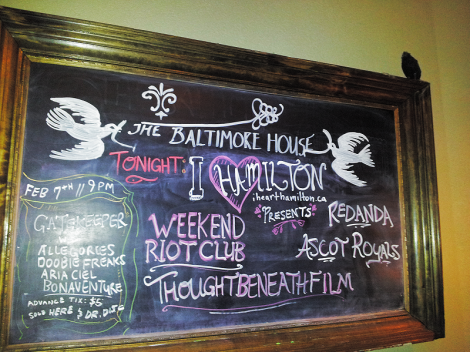 THE BALTIMORE HOUSE
TONIGHT:
I HAMILTON
ihearthamilton.ca
PRESENTS
WEEKEND
RIOT CLUB
REDANDA
ASCOT ROYALS
THOUGHTBENEATHFILM
FEB 7TH // 9PM
GATEKEEPER
ALLEGORIES
DOOBIE FREAKS
ARIA CIEL
BONAVENTURE
ADVANCE TIX: $5
SOLD HERE & DR. DISC